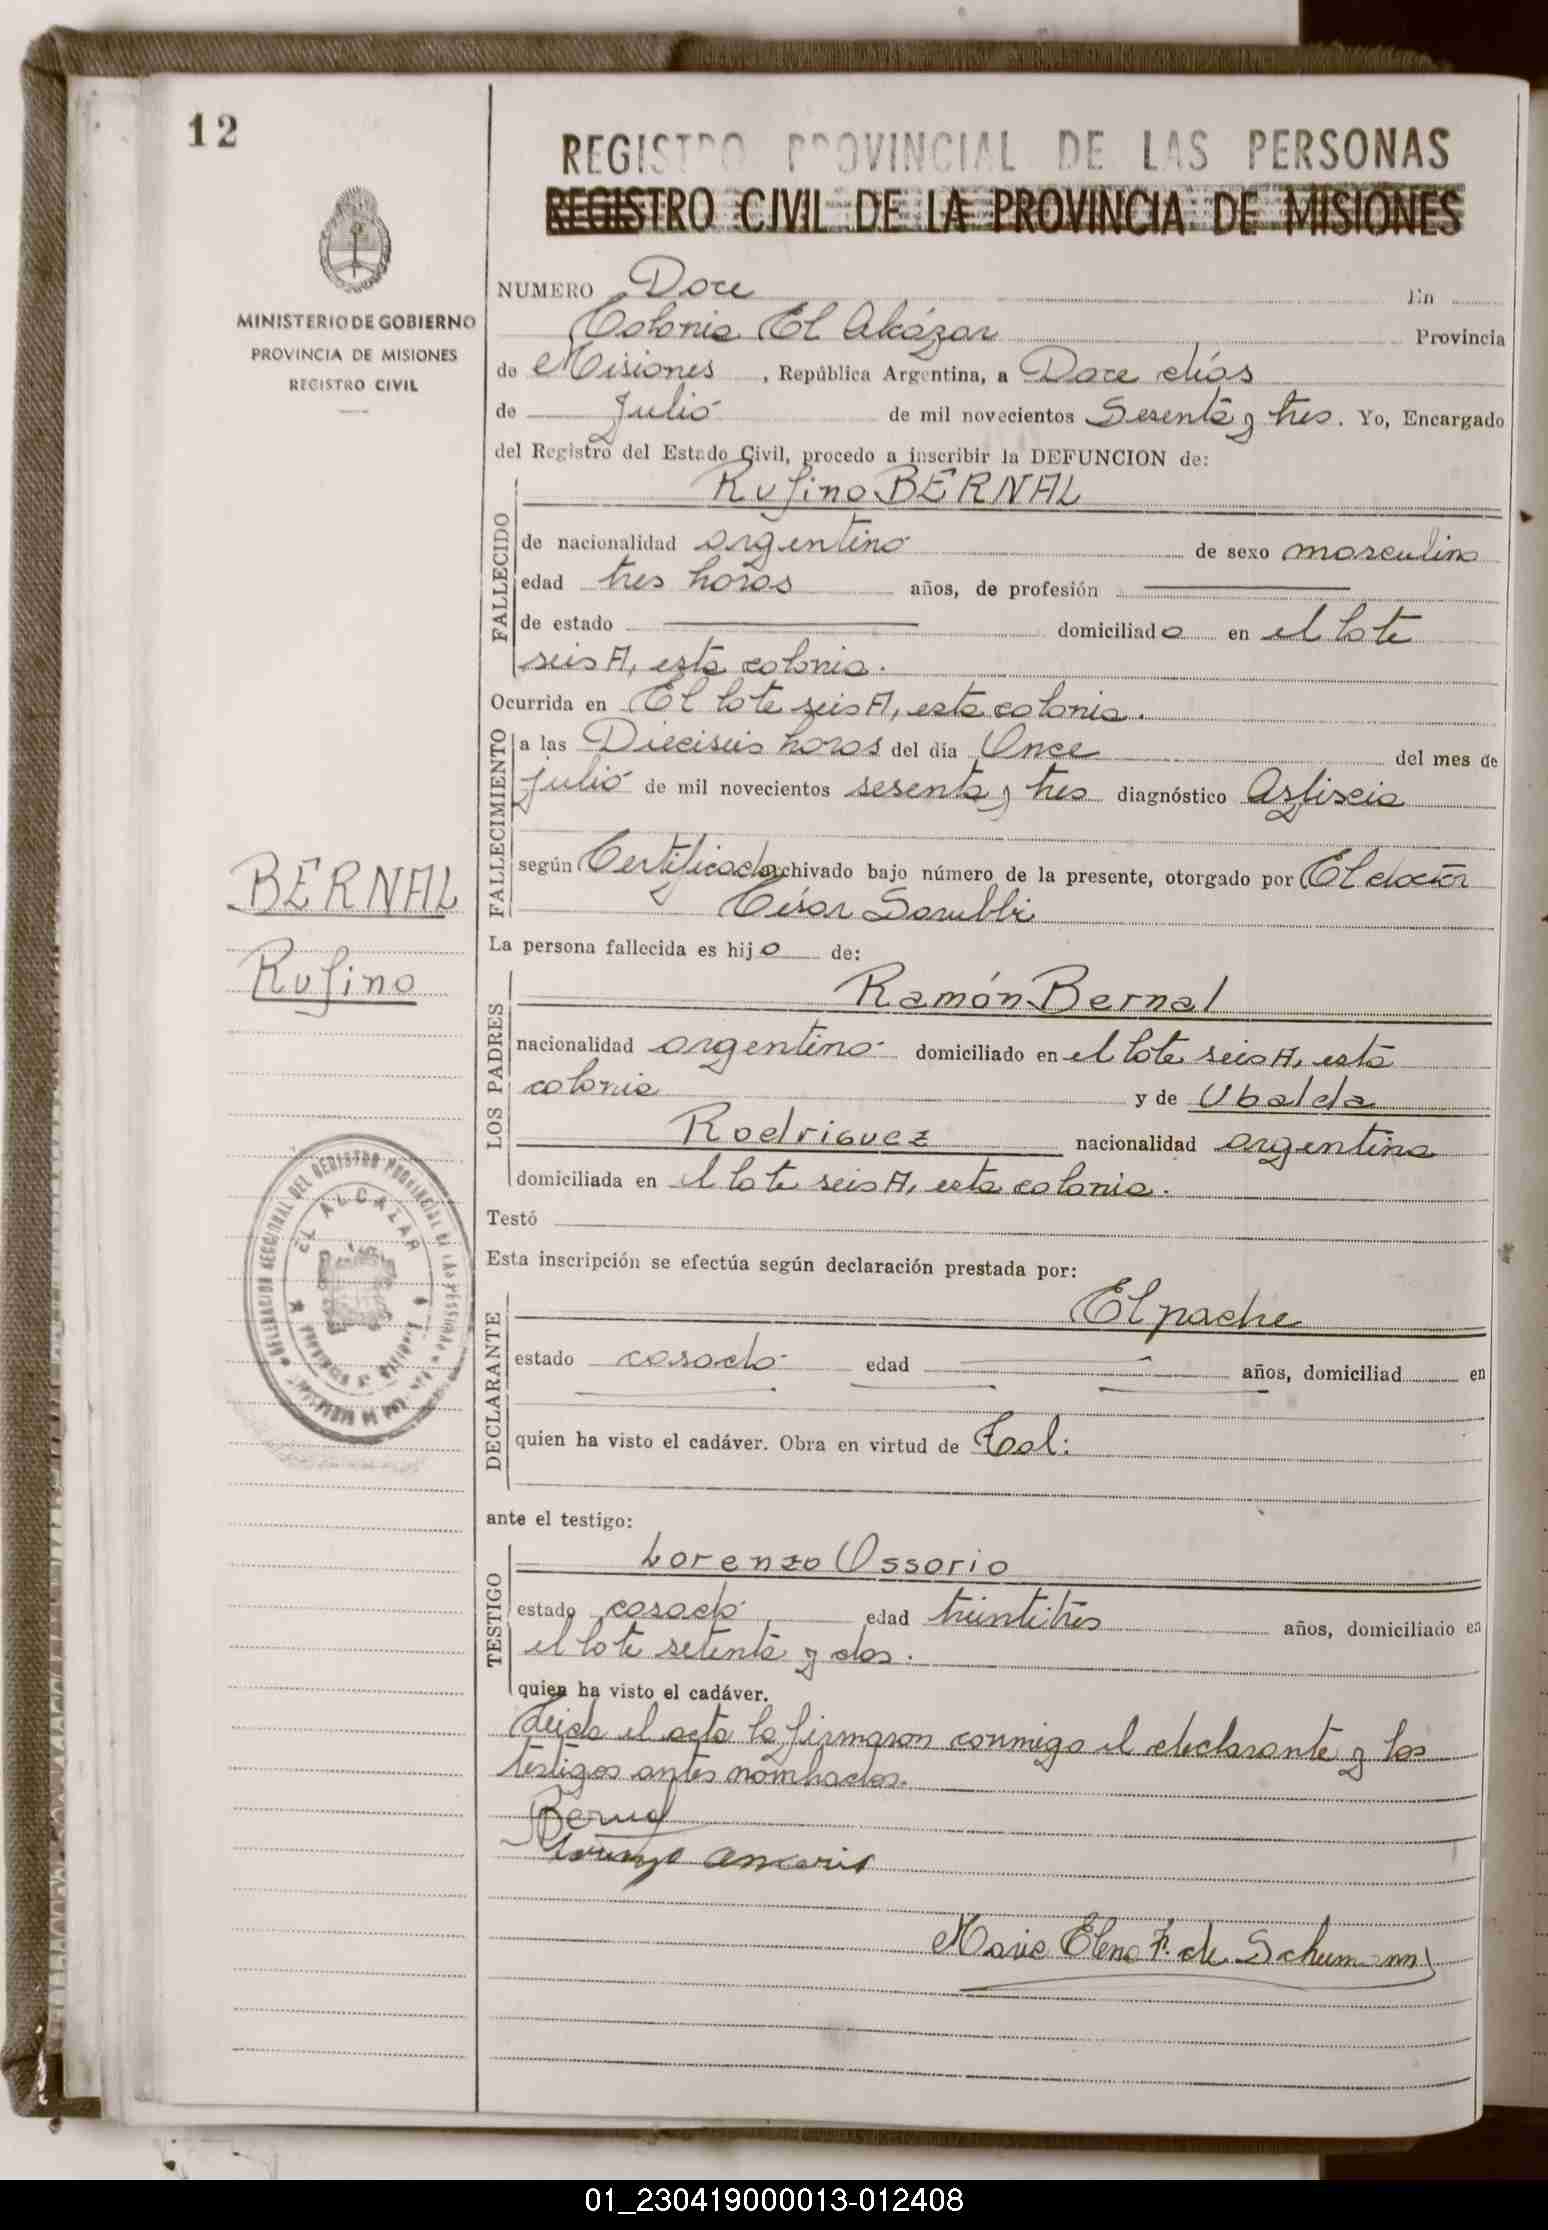 12
MINISTERIO DE GOBIERNO
PROVINCIA DE MISIONES
REGISTRO CIVIL
BERNAL
Rufino
DELEGACION SECCIONAL DEL REGISTRO PROVINCIAL DE LAS PERSONAS
EL ALCAZAR
REGISTRO PROVINCIAL DE LAS PERSONAS
REGISTRO CIVIL DE LA PROVINCIA DE MISIONES
NUMERO Doce En
Colonia El Alcázar Provincia
de Misiones, República Argentina, a Doce días
de Julio de mil novecientos Sesenta y tres. Yo, Encargado
del Registro del Estado Civil, procedo a inscribir la DEFUNCION de:
Rufino BERNAL
FALLECIDO
de nacionalidad argentino de sexo masculino
edad tres horas años, de profesión
de estado domiciliado en el lote
seis A, esta colonia.
Ocurrida en El lote seis A, esta colonia.
FALLECIMIENTO
a las Dieciseis horas del día Once del mes de
julio de mil novecientos sesenta y tres diagnóstico Asfixia
según Certificado archivado bajo número de la presente, otorgado por El doctor
César
La persona fallecida es hijo de:
LOS PADRES
Ramón Bernal
nacionalidad argentino domiciliado en el lote seis A, esta
colonia y de Ubalda
Rodriguez nacionalidad argentina
domiciliada en el lote seis A, esta colonia.
Testó
Esta inscripción se efectúa según declaración prestada por:
DECLARANTE
El padre
estado casado edad años, domiciliad en
quien ha visto el cadáver. Obra en virtud de Tal:
ante el testigo:
TESTIGO
Lorenzo Ossorio
estado casado edad treintitrés años, domiciliado en
el lote setenta y dos.
quien ha visto el cadáver.
Leída el acta la firmaron conmigo el declarante y los
testigos antes nombrados.
Bernal
Maria Elena F. de Schumann
01_230419000013-012408